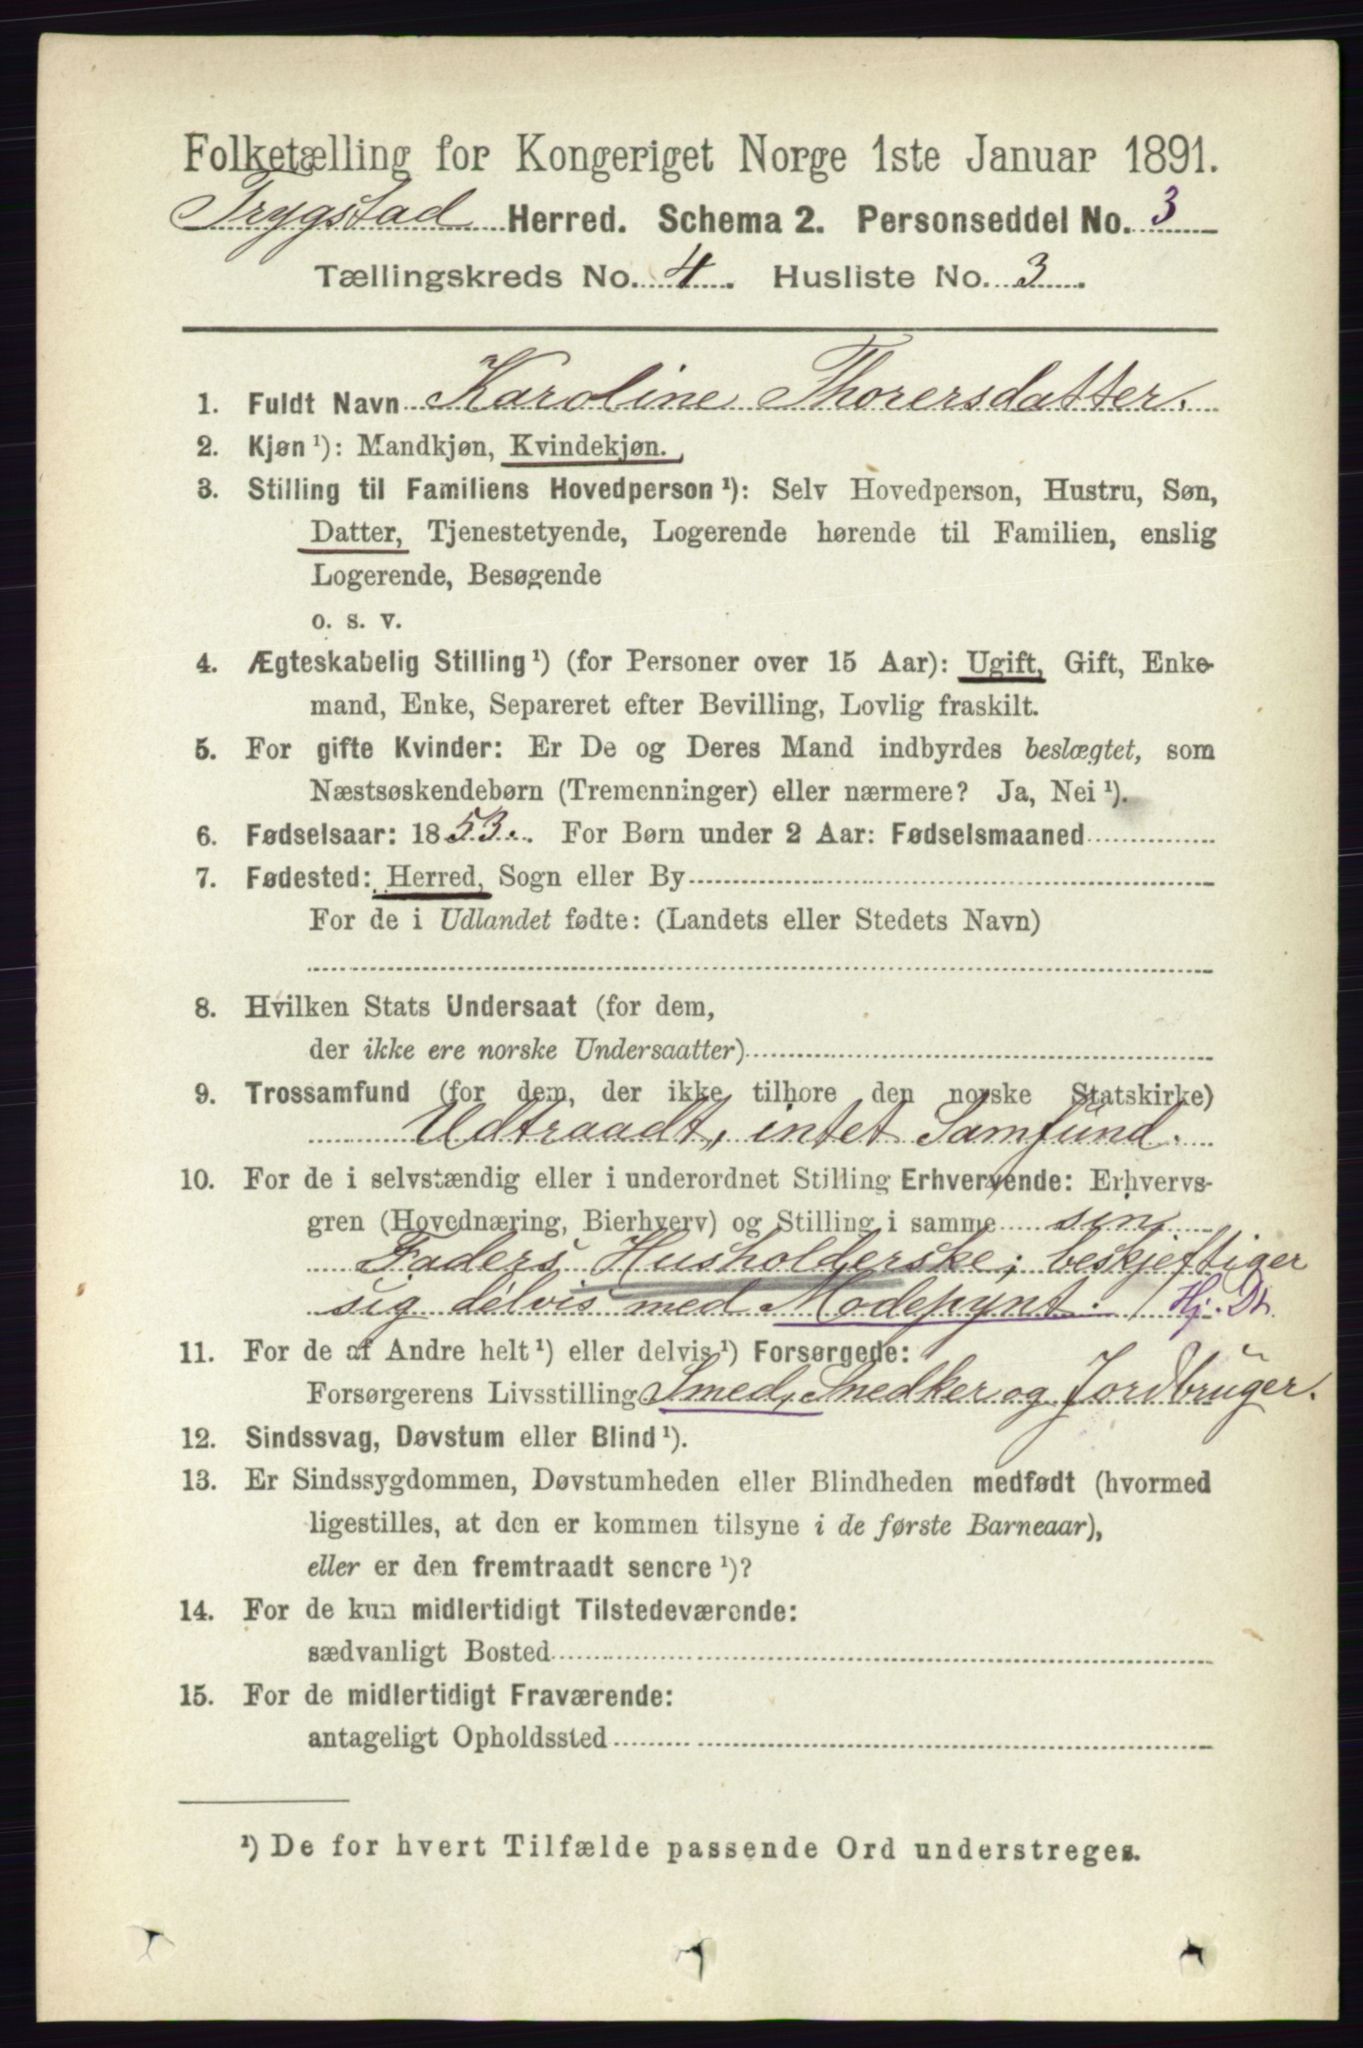 Folketælling for Kongeriget Norge 1ste Januar 1891.
Trygstad Herred. Schema 2. Personseddel No. 3
Tællingskreds No. 4. Husliste No. 3.
1. Fuldt Navn Karoline Thorersdatter.
2. Kjøn ¹): Mandkjøn, Kvindekjøn.
3. Stilling til Familiens Hovedperson ¹): Selv Hovedperson, Hustru, Søn,
Datter, Tjenestetyende, Logerende hørende til Familien, enslig
Logerende, Besøgende
o. s. v.
4. Ægteskabelig Stilling ¹) (for Personer over 15 Aar): Ugift, Gift, Enke-
mand, Enke, Separeret efter Bevilling, Lovlig fraskilt.
5. For gifte Kvinder: Er De og Deres Mand indbyrdes beslægtet, som
Næstsøskendebørn (Tremenninger) eller nærmere? Ja, Nei ¹).
6. Fødselsaar: 1853. For Børn under 2 Aar: Fødselsmaaned
7. Fødested: Herred, Sogn eller By
For de i Udlandet fødte: (Landets eller Stedets Navn)
8. Hvilken Stats Undersaat (for dem,
der ikke ere norske Undersaatter)
9. Trossamfund (for dem, der ikke tilhøre den norske Statskirke)
Udtraadt, intet Samfund.
10. For de i selvstændig eller i underordnet Stilling Erhvervende: Erhvervs-
gren (Hovednæring, Bierhverv) og Stilling i samme sin
Faders Husholderske; beskjeftiger
sig delvis med Modepynt. Hj. Dt.
11. For de af Andre helt ¹) eller delvis ¹) Forsørgede:
Forsørgerens Livsstilling Smed, Snedker og Jordbruger.
12. Sindssvag, Døvstum eller Blind ¹).
13. Er Sindssygdommen, Døvstumheden eller Blindheden medfødt (hvormed
ligestilles, at den er kommen tilsyne i de første Barneaar),
eller er den fremtraadt senere ¹)?
14. For de kun midlertidigt Tilstedeværende:
sædvanligt Bosted
15. For de midlertidigt Fraværende:
antageligt Opholdssted
¹) De for hvert Tilfælde passende Ord understreges.